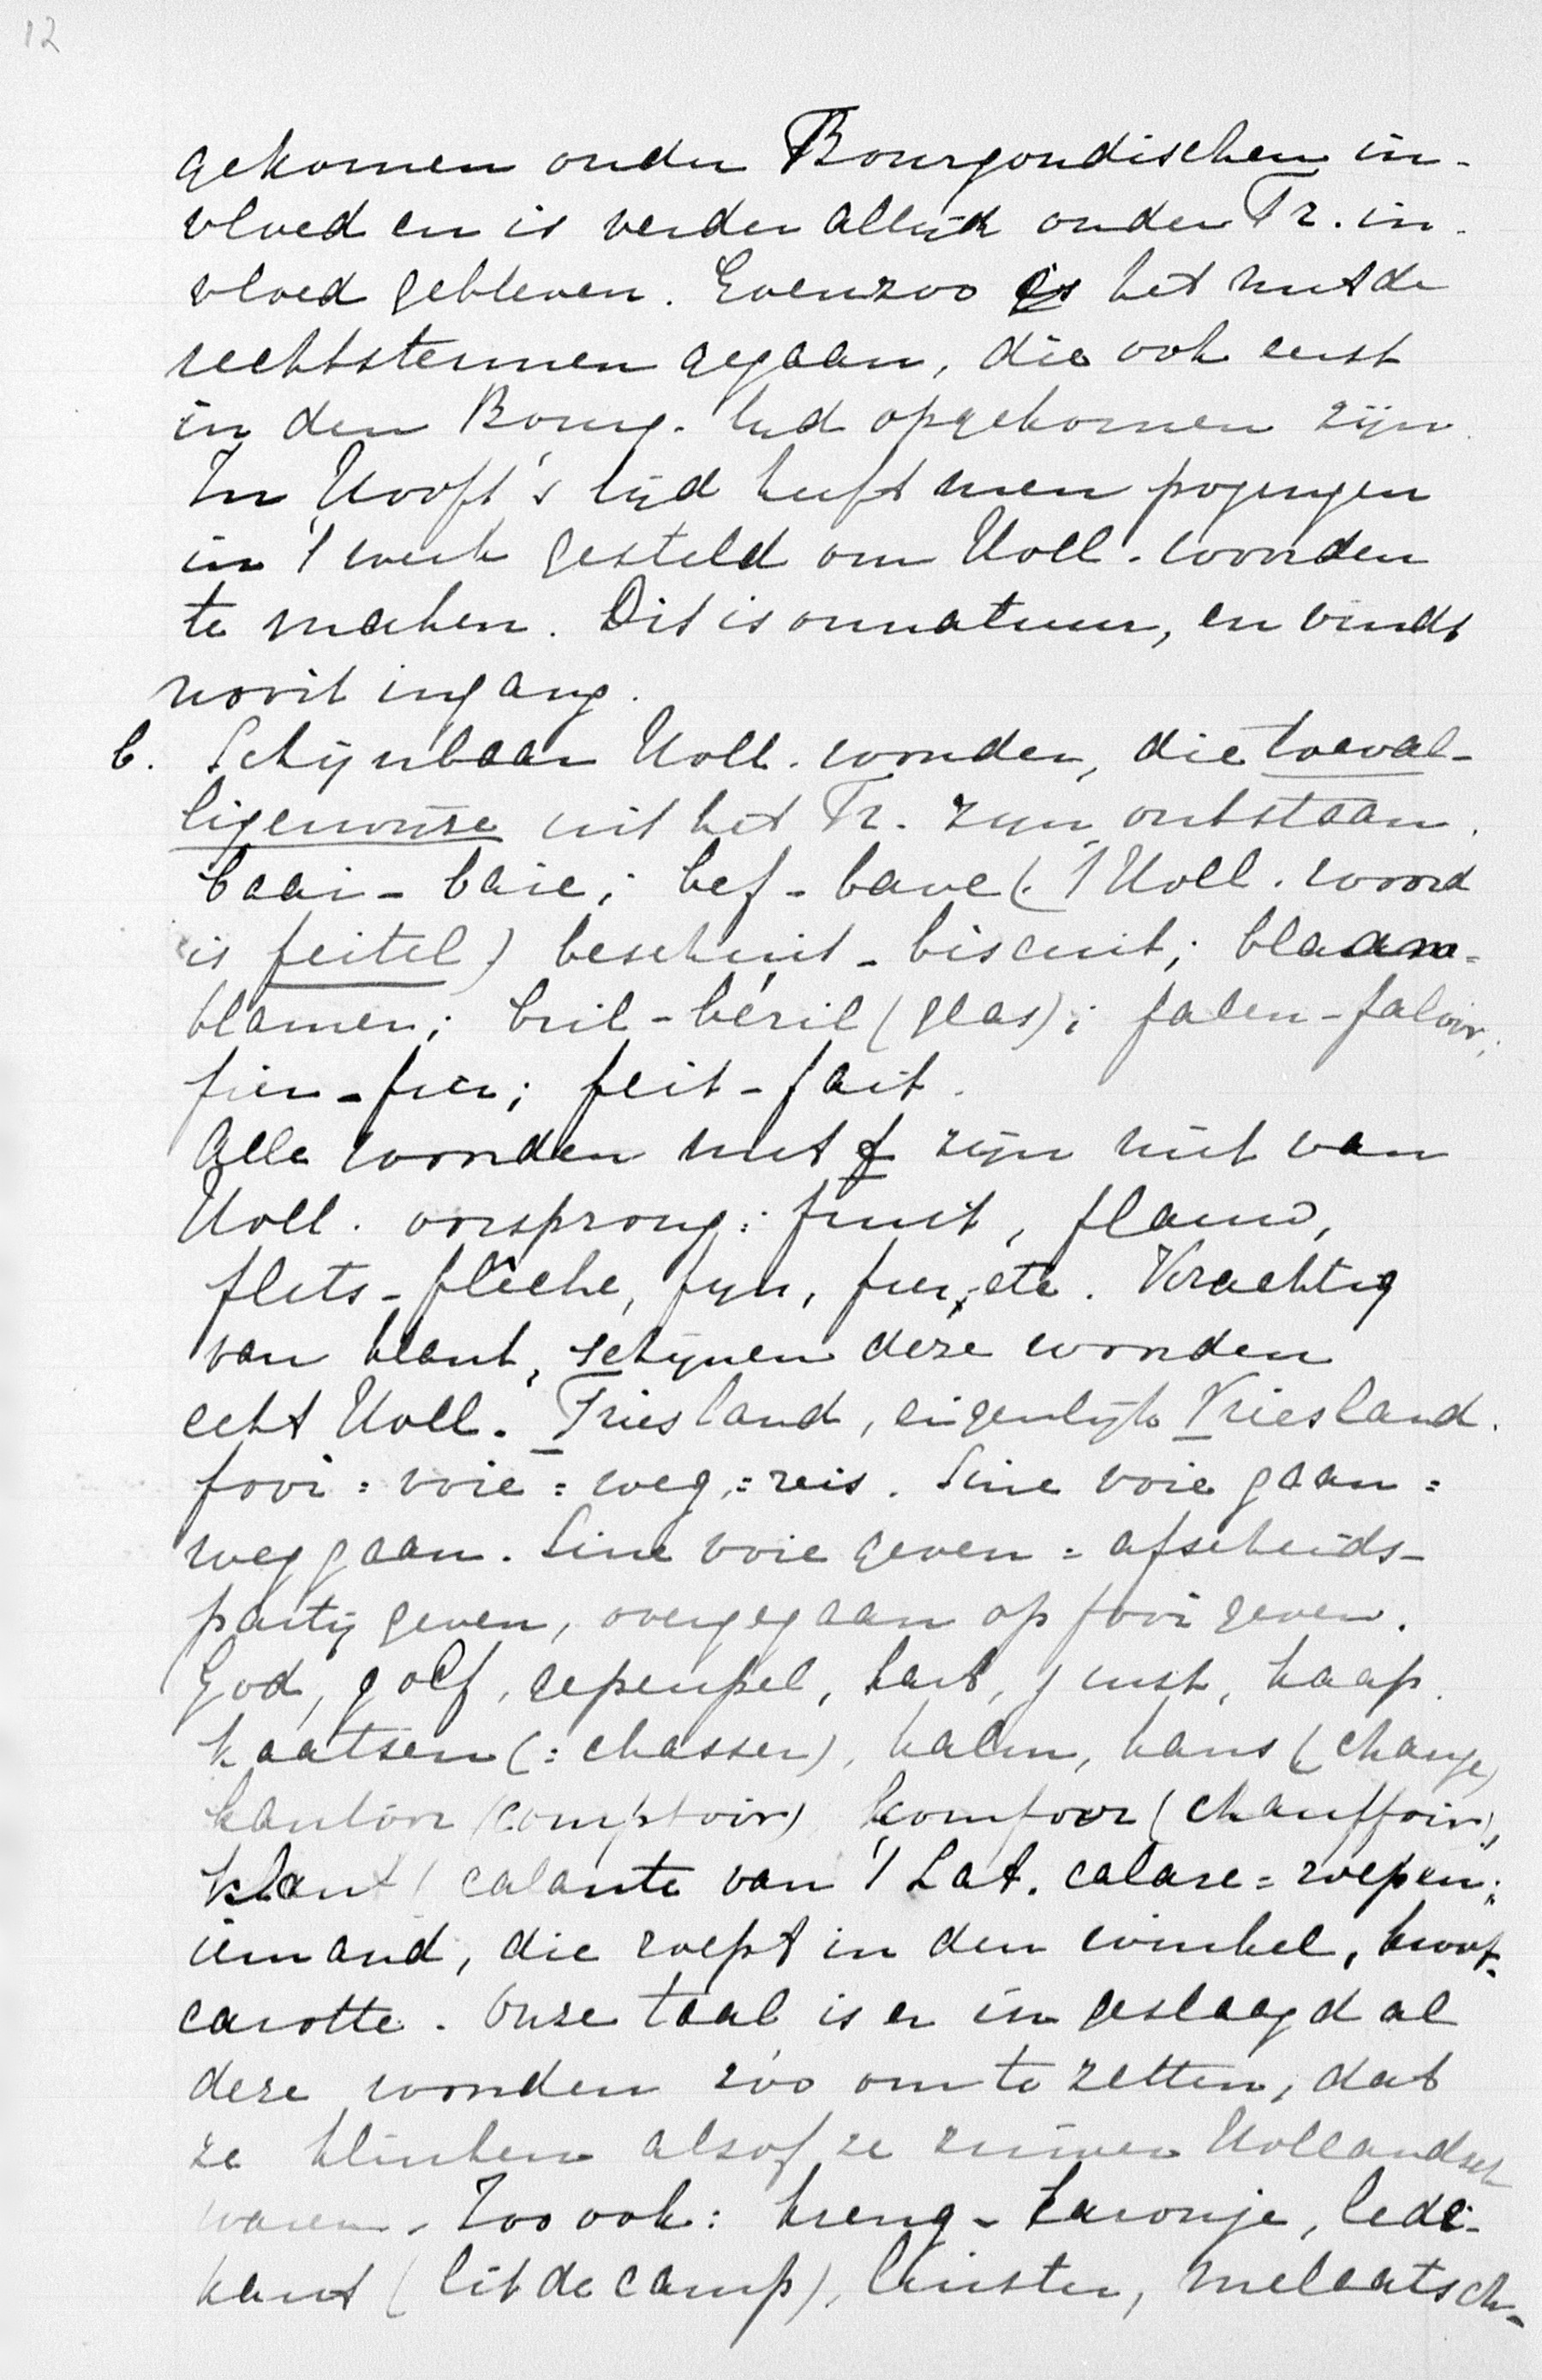 12
gekomen onder Bourgondischen in-
vloed en is verder altijd onder Fr. in-
vloed gebleven. Evenzoo is het met de
rechtstermen gegaan, die ook eerst
in den Bourg. tijd opgekomen zijn.
In Hooft's tijd heeft men pogingen
in 't werk gesteld om Holl. woorden
te maken. Dit is onnatuur, en vindt
nooit ingang.
b. Schijnbaar Holl. woorden, die toeval-
ligerwijze uit het Fr. zijn ontstaan.
baai - baie; bef - bave ('t Holl. woord
is feitel) beschuit - biscuit; blaam -
blamer; bril - béril (glas); falen - faloir;
fier - fier; feit - fait.
Alle woorden met f zijn niet van
Holl. oorsprong: fruit, flauw,
flets - flèche, fijn, fier, etc. Krachtig
van klank, schijnen deze woorden
echt Holl. Friesland, eigenlijk Vriesland.
fooi = voie = weg, = reis. Sine voie gaan =
weggaan. Sine voie geven = afscheids-
partij geven, overgegaan op fooi geven.
God, golf, gepeupel, hart, juist, kaap.
kaatsen (= chasser), kalm, kans (change)
kantoor (comptoir) komfoor (chauffoir),
klant (calante van 't Lat. calare = roepen;
iemand, die roept in den winkel, kroot -
carotte. Onze taal is er in geslaagd al
deze woorden zóó om te zetten, dat
ze klinken alsof ze zuiver Hollandsch
waren. Zoo ook: kreng - karonje, ledi-
kant (lit de camp), luister, melaatsch -